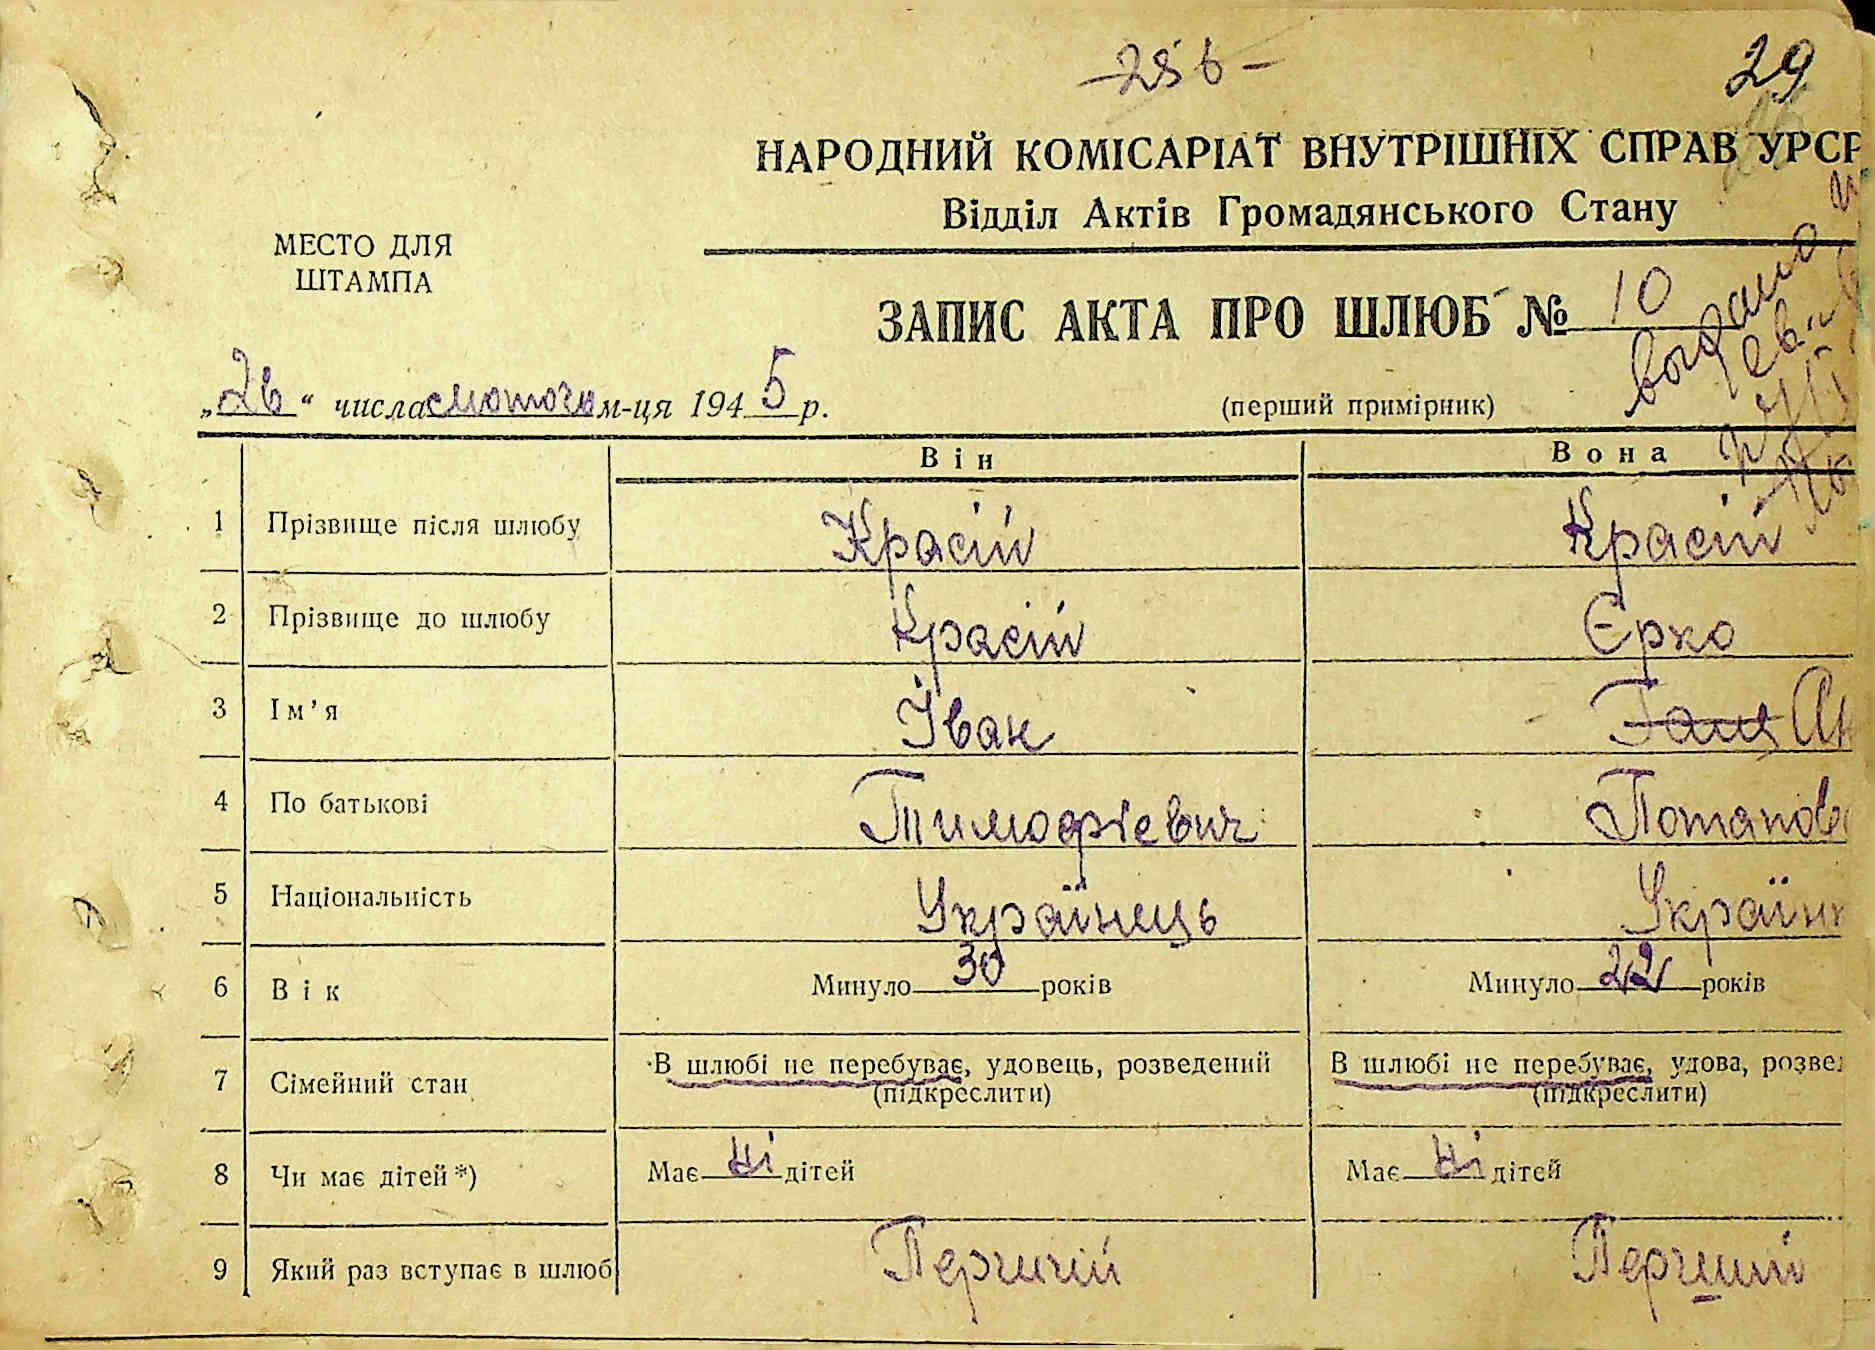 29
НАРОДНИЙ КОМІСАРІАТ ВНУТРІШНІХ СПРАВ УРСР
Відділ Актів Громадянського Стану
МЕСТО ДЛЯ
ШТАМПА
ЗАПИС АКТА ПРО ШЛЮБ № 10
„26“ числа лютого м-ця 1945 р. (перший примірник)
Він Вона
1 Прізвище після шлюбу Красій Красій
2 Прізвище до шлюбу Красій Єрко
3 Ім’я Іван
4 По батькові Тимофієвич Потапов
5 Національність Українець Україн
6 Вік Минуло 30 років Минуло 22 років
7 Сімейний стан В шлюбі не перебуває, удовець, розведений В шлюбі не перебуває, удова, розве
(підкреслити) (підкреслити)
8 Чи має дітей *) Має ні дітей Має ні дітей
9 Який раз вступає в шлюб Перший Перший